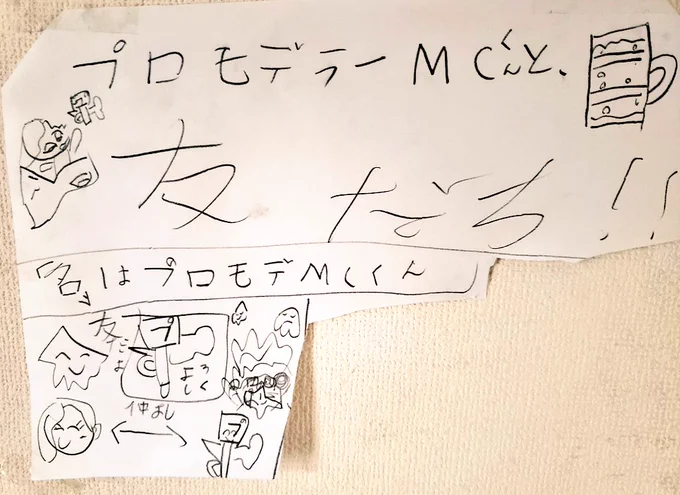 プロモデラーMCくんと、
友だち!!
「名」はプロモデMCくん
プ
よろしく
仲よし
プ